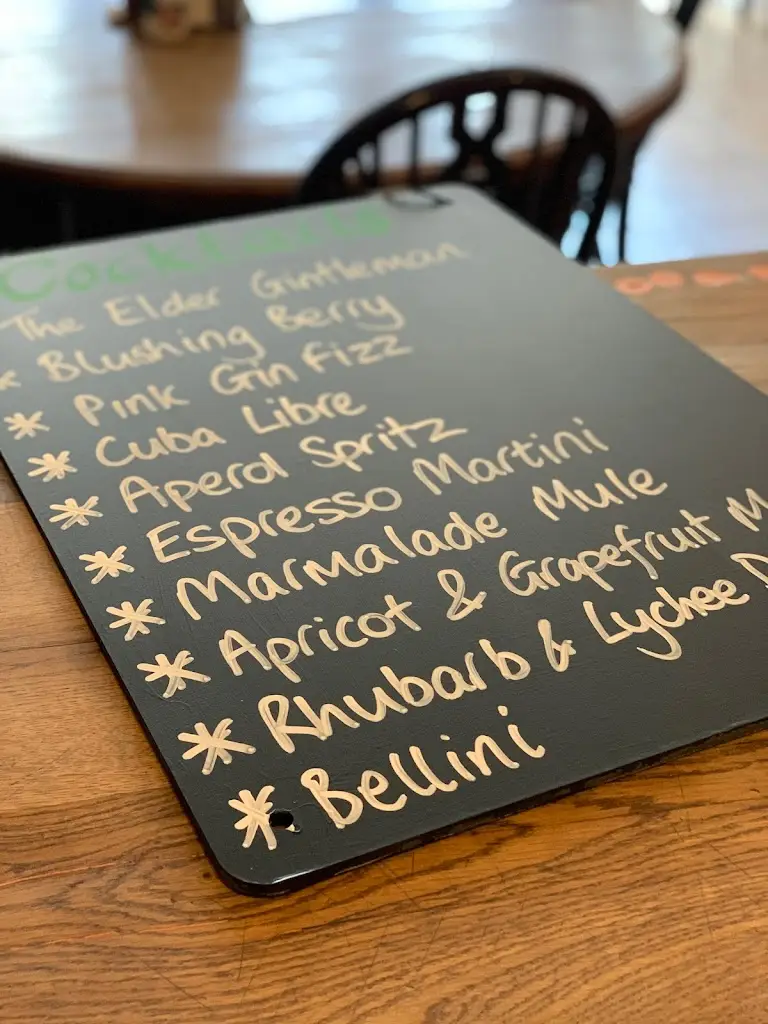 Cocktails
The Elder Gintleman
* Blushing Berry
* Pink Gin Fizz
* Cuba Libre
* Aperol Spritz
* Espresso Martini
* Marmalade Mule
* Apricot & Grapefruit M
* Rhubarb & Lychee D
* Bellini